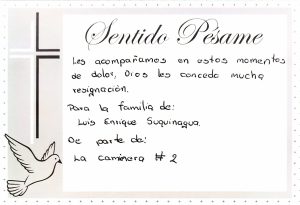 Sentido Pésame
Les acompañamos en estos momentos
de dolor, Dios les conceda mucha
resignación.
Para la familia de:
Luis Enrique Suquinagua.
De parte de:
La caminera # 2